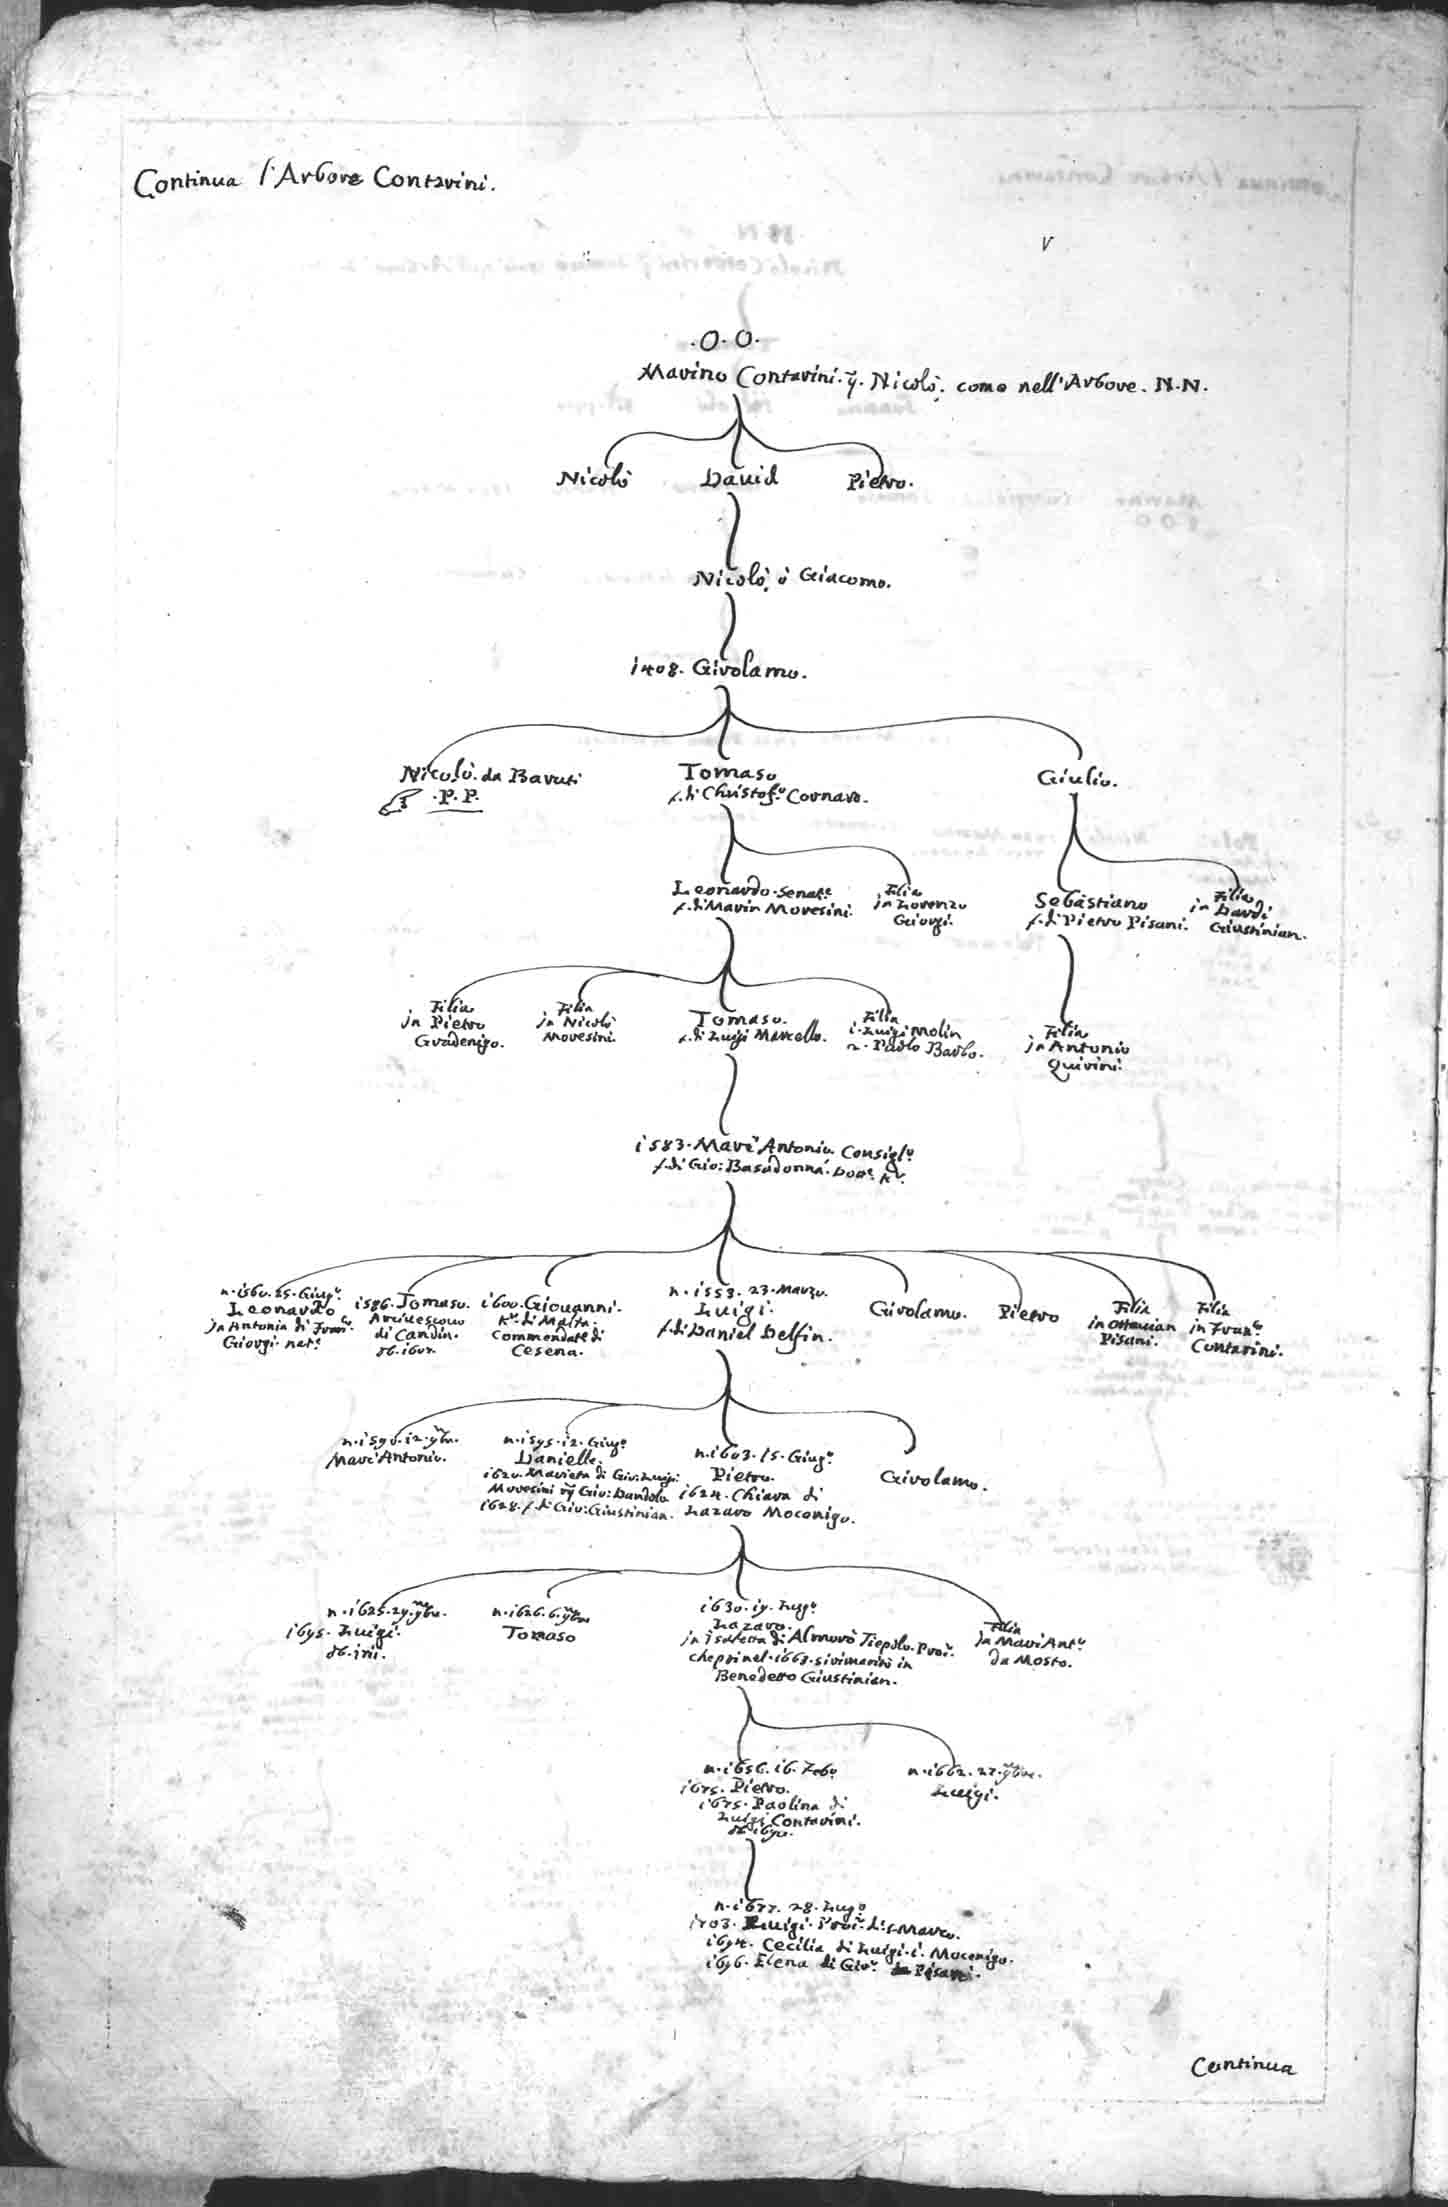 Continua l'Arbore Contarini.
.O. O.
Marino Contarini. q̃. Nicolò. come nell'Arbore. N.N.
Nicolò
David
Pietro.
Nicolò, ò Giacomo.
1408. Girolamo.
Nicolò. da Baruti
.P. P.
Tomaso
f. di Christof.º Cornaro.
Giulio.
Leonardo. Senat.e
f. di Marin Moresini.
Filia
in Lorenzo
Giorgi.
Sebastiano
f. di Pietro Pisani.
Filia
in
Giustinian.
Filia
in Pietro
Gradenigo.
Filia
in Nicolò
Moresini.
Tomaso.
f. di Luigi Marcello.
Filia
1. Luigi Molin
2. Paolo Barbo.
Filia
in Antonio
Quirini.
1583. Marc'Antonio. Consigl.r
f. di Gio: Basadonna. Dott.e K.r
n. 1560. 25. Giug.º
Leonardo
in Antonia di Fran.co
Giorgi. nat.e
1586. Tomaso.
Arcivescovo
di Candia.
ob. 1604.
1600. Giovanni.
K.r di Malta.
Commendat.e di
Cesena.
n. 1553. 23. Marzo.
Luigi.
f. di Daniel Delfin.
Girolamo.
Pietro
Filia
in Ottavian
Pisani.
Filia
in Fran.co
Contarini.
n. 1590. 12. 9bre.
Marc'Antonio.
n. 1595. 12. Giug.º
Danielle.
1620. Marieta di Gio: Luigi
Moresini Gio: Dandolo
1628. f. di Gio: Giustinian.
n. 1603. 15. Giug.º
Pietro.
1624. Chiara di
Lazaro Mocenigo.
Girolamo.
n. 1625. 29. 9bre.
1695. Luigi.
n. 1626. 6. 9bre
Tomaso
1630. 19. Lug.º
Lazaro.
in Isabetta di Almorò Tiepolo. Proc.r
che poi nel. 1663. si rimaritò in
Benedetto Giustinian.
Filia
in Marc'Ant.º
da Mosto.
n. 1656. 16. Feb.º
1675. Pietro.
1675. Paolina di
Luigi Contarini.
ob. 1690.
n. 1662. 27. 9bre.
Luigi.
n. 1677. 28. Lug.º
1703. Luigi. Proc.r di S. Marco.
1694. Cecilia di Luigi. 1. Mocenigo.
1696. Elena di Gio: Pisani.
Continua